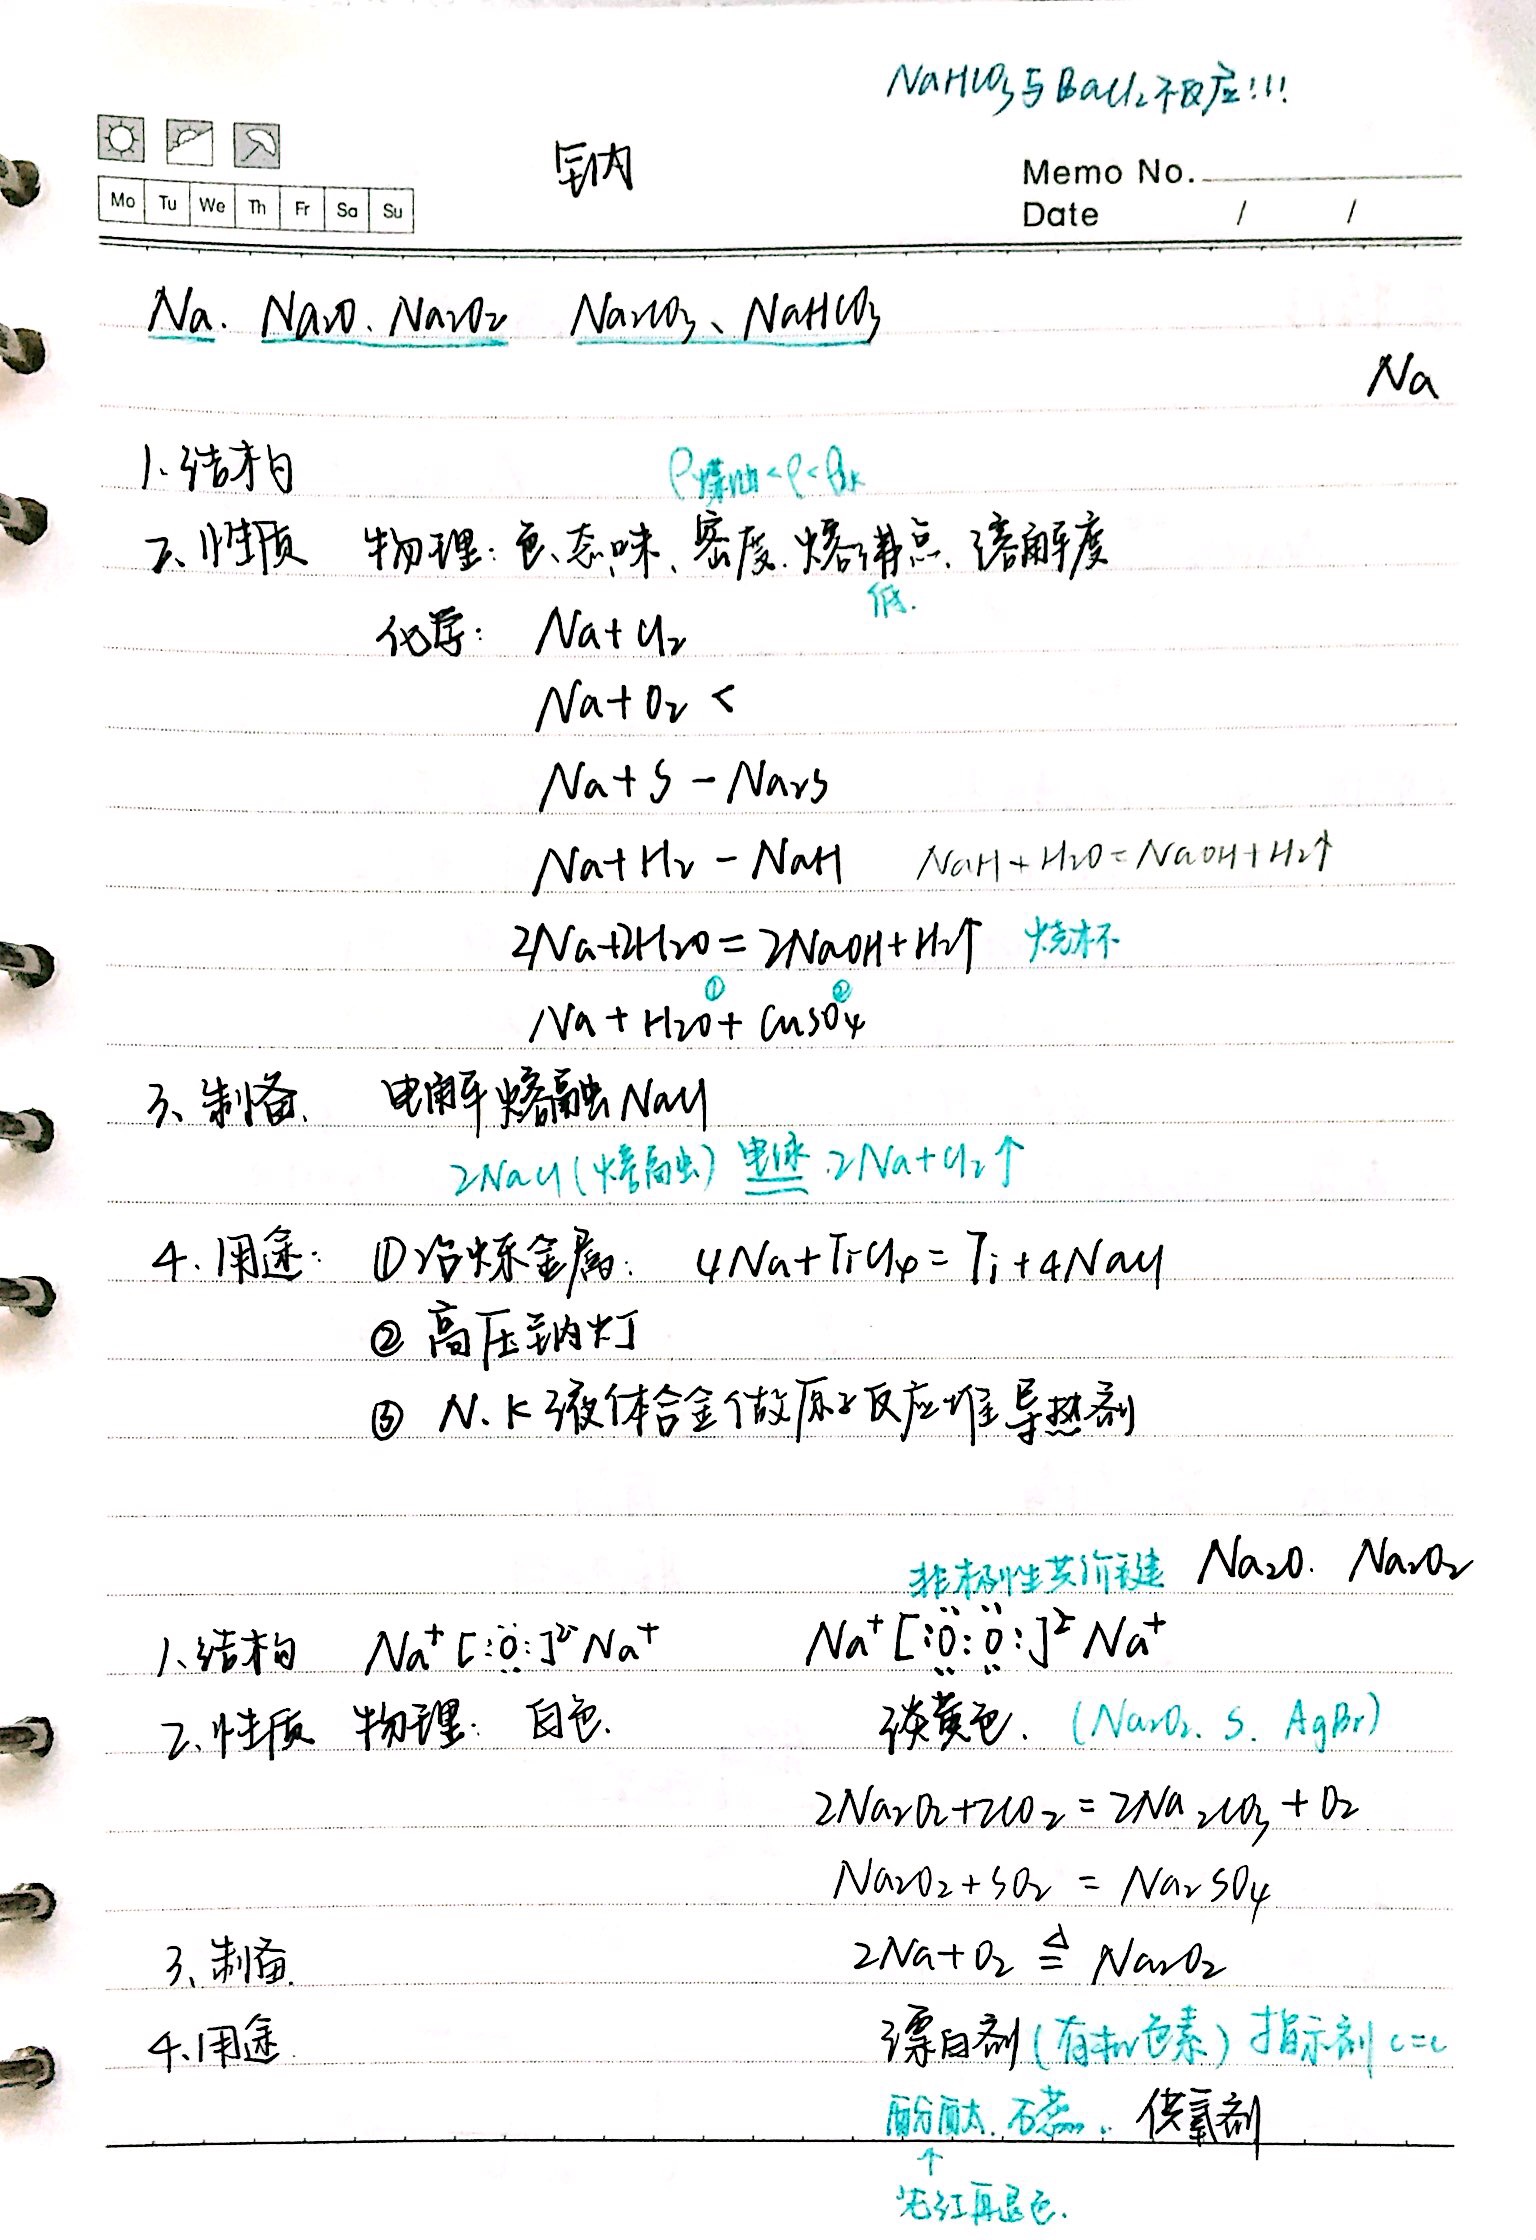 NaHCO₃与BaCl₂不反应!!!
钠
Memo No.
Mo Tu We Th Fr Sa Su
Date / /
Na. Na₂O、Na₂O₂ Na₂CO₃、NaHCO₃
Na
1、结构
ρ煤油<ρ<ρ水
2、性质 物理：色、态、味、密度、熔沸点、溶解度
低.
化学： Na+Cl₂
Na+O₂ <
Na+S - Na₂S
Na+H₂ - NaH NaH+H₂O=NaOH+H₂↑
2Na+2H₂O=2NaOH+H₂↑ 烧杯
① ②
Na+H₂O+CuSO₄
3、制备. 电解熔融NaCl
2NaCl(熔融) 电解 2Na+Cl₂↑
4.用途： ①冶炼金属： 4Na+TiCl₄=Ti+4NaCl
②高压钠灯
③ N、K液体合金做原子反应堆导热剂
非极性共价键 Na₂O. Na₂O₂
1、结构 Na⁺[:Ö:]²⁻Na⁺ Na⁺[:Ö:Ö:]²⁻Na⁺
2、性质 物理： 白色. 淡黄色. (Na₂O₂. S. AgBr)
2Na₂O₂+2CO₂=2Na₂CO₃+O₂
Na₂O₂+SO₂=Na₂SO₄
3、制备. 2Na+O₂ ≜ Na₂O₂
4.用途 漂白剂(有机色素) 指示剂 C=C
酚酞、石蕊. 供氧剂
↑
先红再退色.